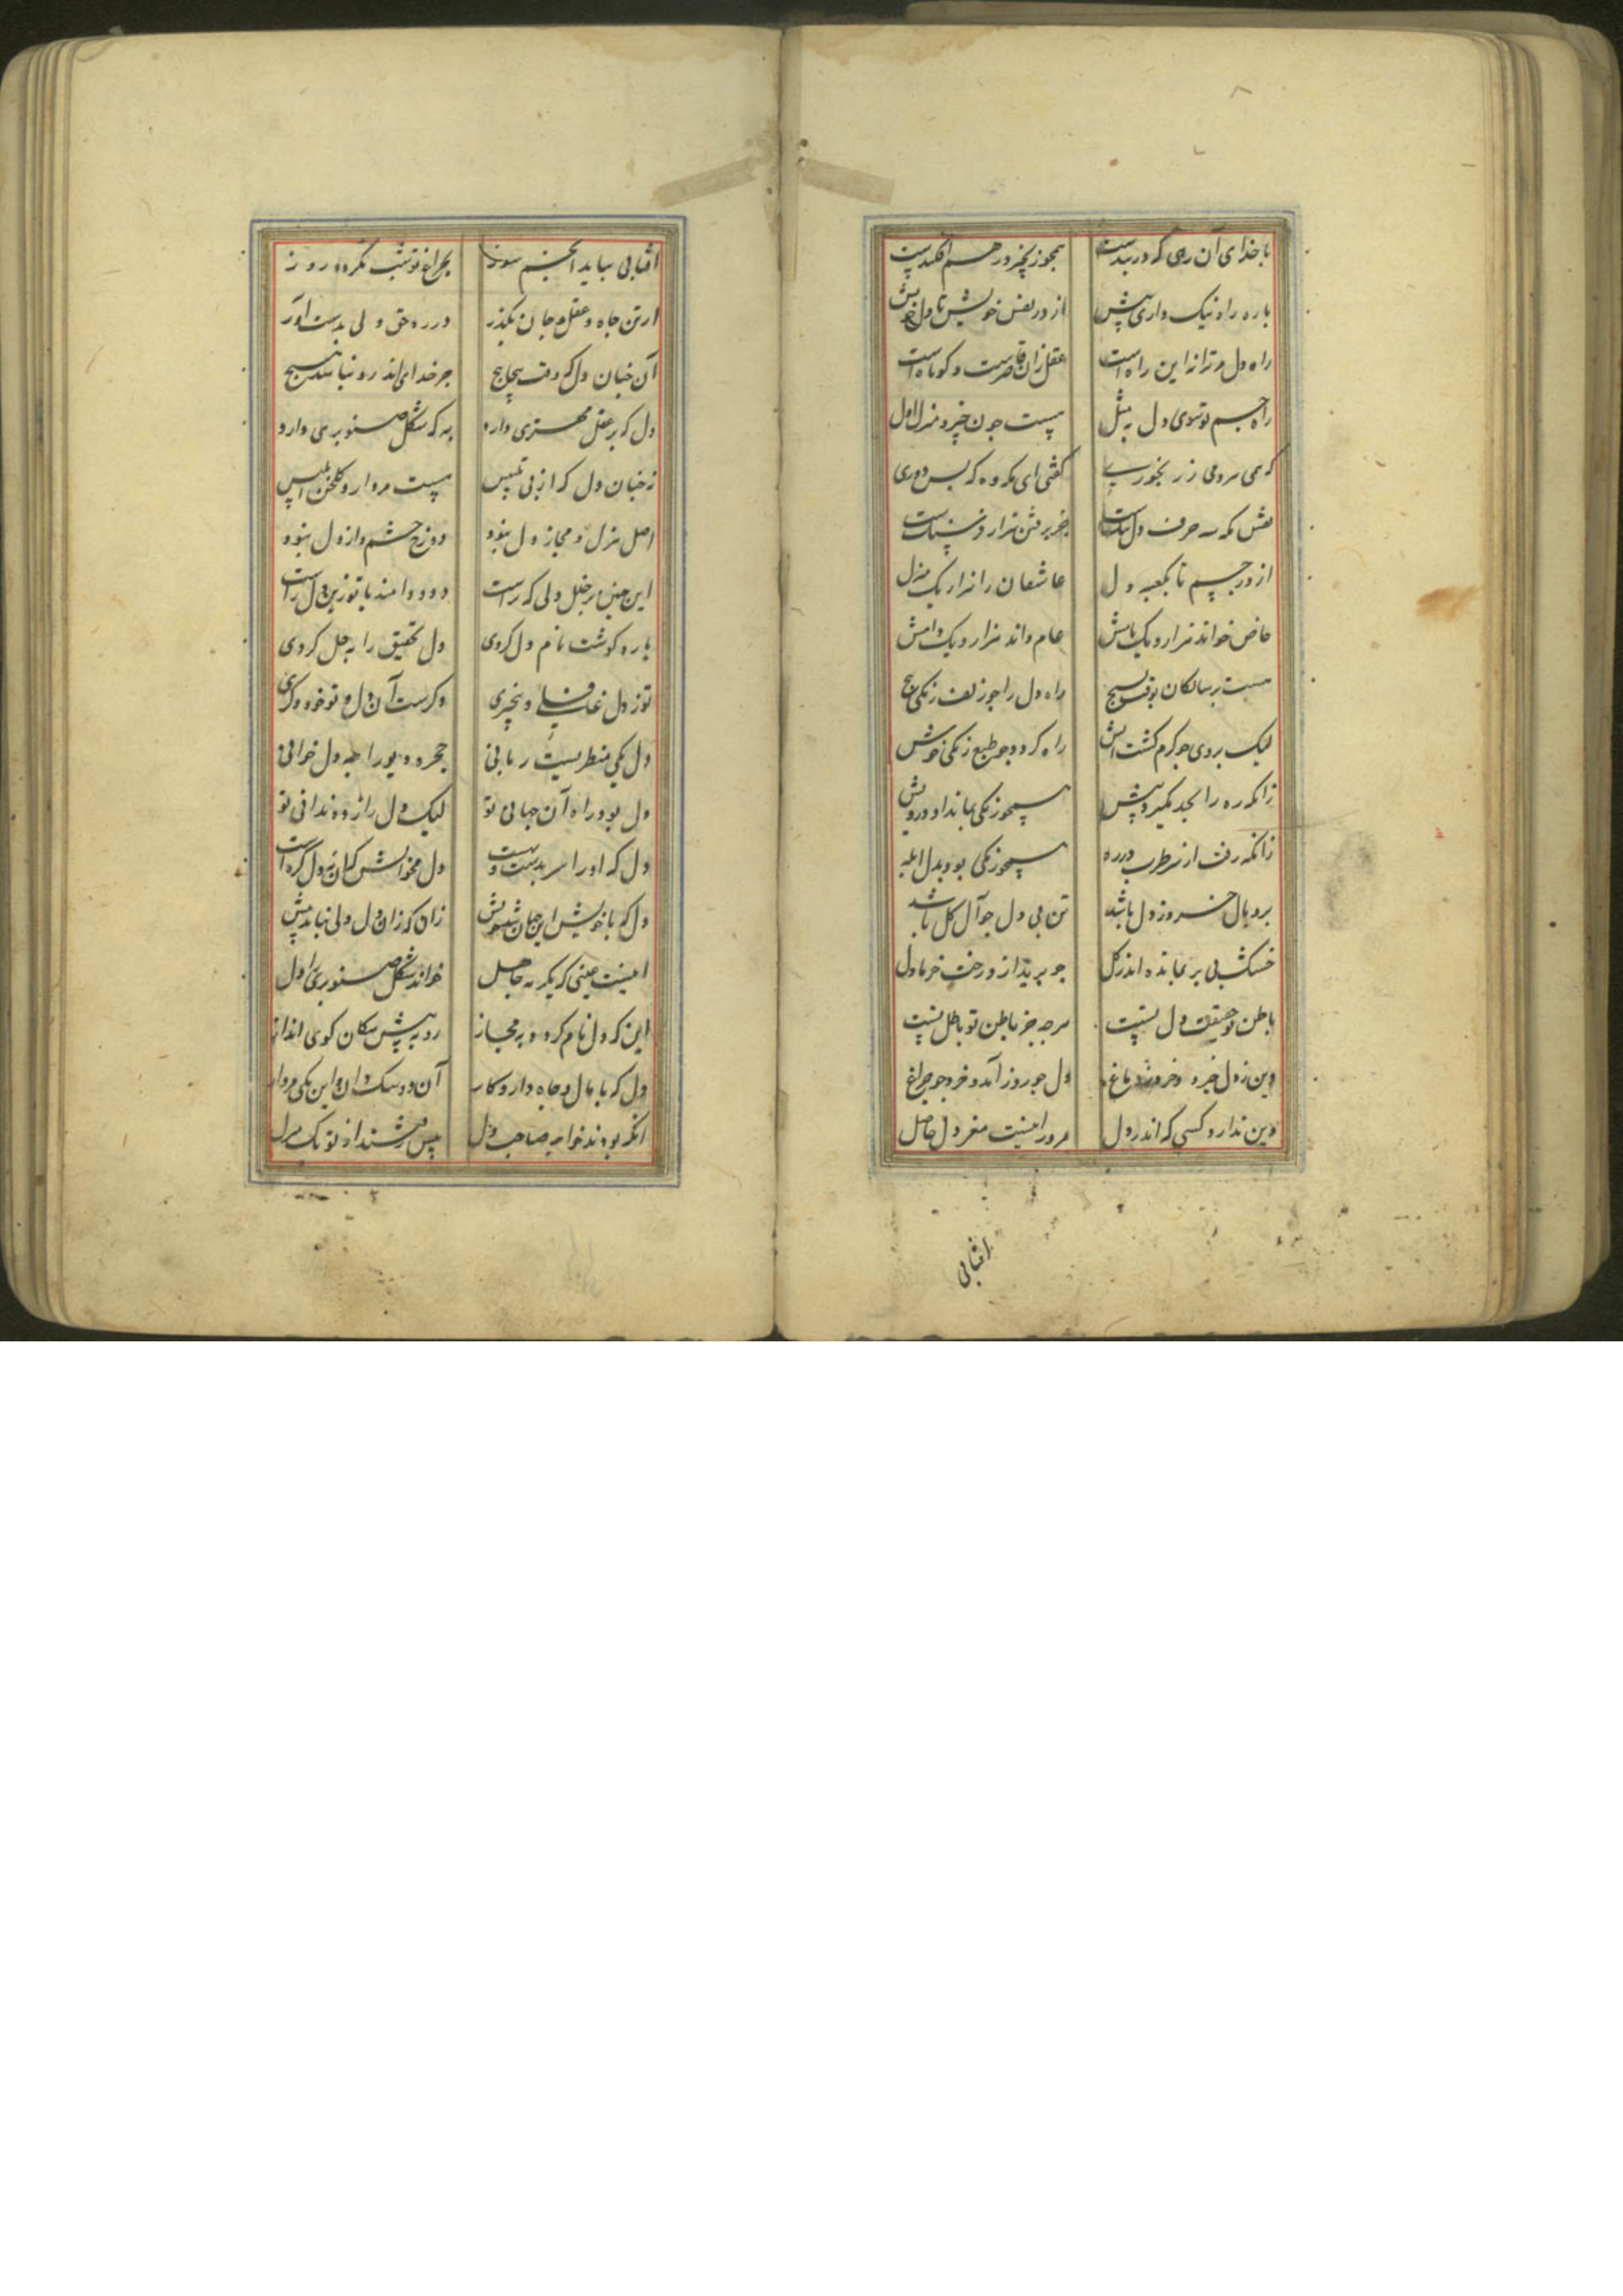 با خدای آن رهی که دربندست همجو زنجیر در هم افکندست
باره راه نیک داری پیش از در نفس خویش تا دل خویش
راه دل مر ترا از این راه است عقل زان قاصرست و کوتاه است
راه جسم تو سوی دل به مثل هست جون خیر و منزل اول
که همی مردمی ز رنجوری کفتی ای مکر وه که بس دوری
نقش که سه حرف دل نکست خبر رفتن هزار فرسنکست
از در جسم تا بکعبه دل عاشقان را هزار یک منزل
خاص خواند هزار و یک نامش عام داند هزار و یک دامش
هست بر سالکان بوقت بسیج راه دل را جو زلف زنکی بیج
لیک بردی جو کرم کشت آتش راه کردد جو طبع زنکی خوش
زانکه ره را بجد نکیرد پیش همجو زنکی بماند او درویش
زانکه رفت از سر طرب در ره همجو زنکی بود بدل ابله
بر و بال خرد ز دل باشد تن بی دل جو آل کل باشد
خشک بی بر بمانده اندر کل جو برید از درخت خرما دل
باطن تو حقیقت دل تست هرجه جز باطن تو باطل تست
دین ز دل خیزد و خرد ز دماغ دل جو روز آمد و خرد جو جراغ
دین ندارد کسی که اندر دل مر ورا نیست مغز دل حاصل
افتابی
افتابی بباید انجم سوز بجراغ تو شب نکردد روز
از تن و جاه و عقل و جان بکذر در ره حق دلی بدست آور
آن جنان دل که وقت بیجابیج جز خدای اندرو نباشد هیج
دل که بر عقل مهتری دارد به که شکل صنوبری دارد
ز جنان دل که از بی تلبیس هست مردار و کلخن ابلیس
اصل هزل و مجاز دل نبود دوزخ خشم و از دل نبود
این جنین پر خلل دلی که تراست دد و دامند با تو زین دل راست
باره کوشت نام دل کردی دل تحقیق را بحل کردی
تو ز دل غافلی و بیخبری دکرست آن دل و تو خود دکری
دل یکی منظریست ربانی حجره دیو را جه دل خوانی
دل بود راه آن جهانی تو لیک دل راز ده ندانی تو
دل که او را سر بدست دل مخوانش که آن نه دل کره است
دل که با خویش این جهان شد خویش زان که زان دل دلی نیاید پیش
اینت عینی که یکرمه جاهل خوانده شکل صنوبری را دل
این که دل نام کرده به مجاز رو به پیش سکان کوی انداز
دل که با مال و جاه دارد کار آن دو سک دان و این یکی مردار
انکه بودند خواجه صاحب دل پیش رفتند از تو یک منزل